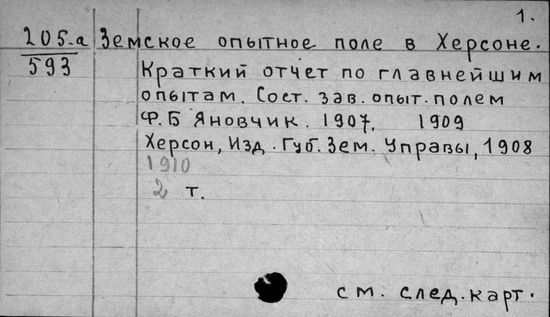 1.
205.а Земское опытное поле в Херсоне.
593
Краткий отчет по главнейшим
опытам. Сост. зав. опыт. полем
Ф.Б Яновчик. 1907. 1909
Херсон, Изд. Губ. Зем. Управы, 1908
1910
2 т.
см. след. карт.